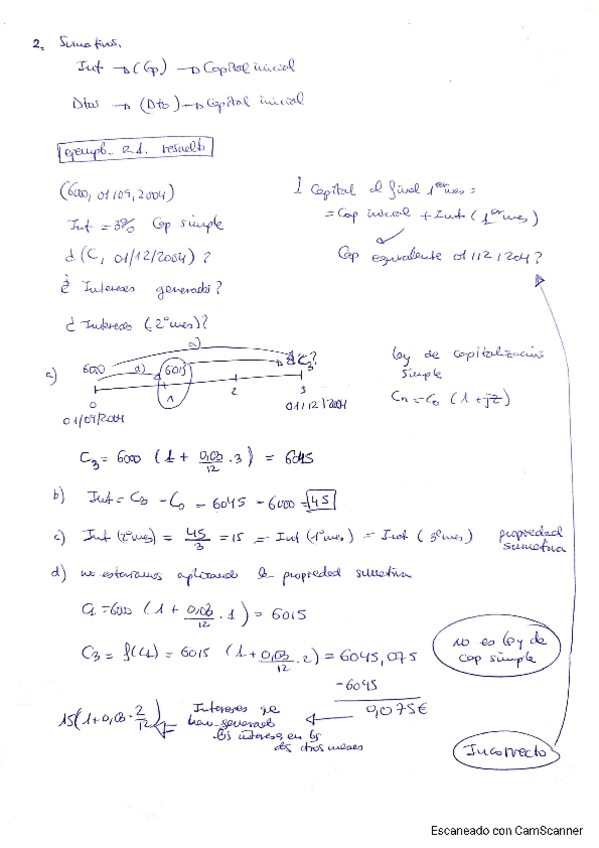 2. Sumativas.
Int → (Cp) → Capital inicial
Dtos → (Dto) → Capital inicial
ejemplo 2.1. resuelto
(6000, 01/09/2004)
Int = 3% Cap simple
¿ (C, 01/12/2004) ?
¿ Intereses generados?
¿ Intereses (2º mes)?
Capital al final 1er mes =
= Cap inicial + Int (1er mes)
Cap equivalente 01/12/204?
a)
a) 6000 a) 6015 C3?
0 1 2 3
01/09/2004 01/12/2004
ley de capitalización
simple
Cn = C0 (1 + iz)
C3 = 6000 (1 + 0,03/12 · 3) = 6045
b) Int = C3 - C0 = 6045 - 6000 = 45
c) Int (2º mes) = 45/3 = 15 = Int (1º mes) = Int (3º mes) propiedad
sumativa
d) no estaríamos aplicando la propiedad sumativa
C1 = 6000 (1 + 0,03/12 · 1) = 6015
C3 = f(C1) = 6015 (1 + 0,03/12 · 2) = 6045,075
-6045
0,075€
no es ley de
cap simple
15(1+0,03 · 2/12) Intereses que
han generado
los intereses en los
dos meses
Incorrecto
Escaneado con CamScanner